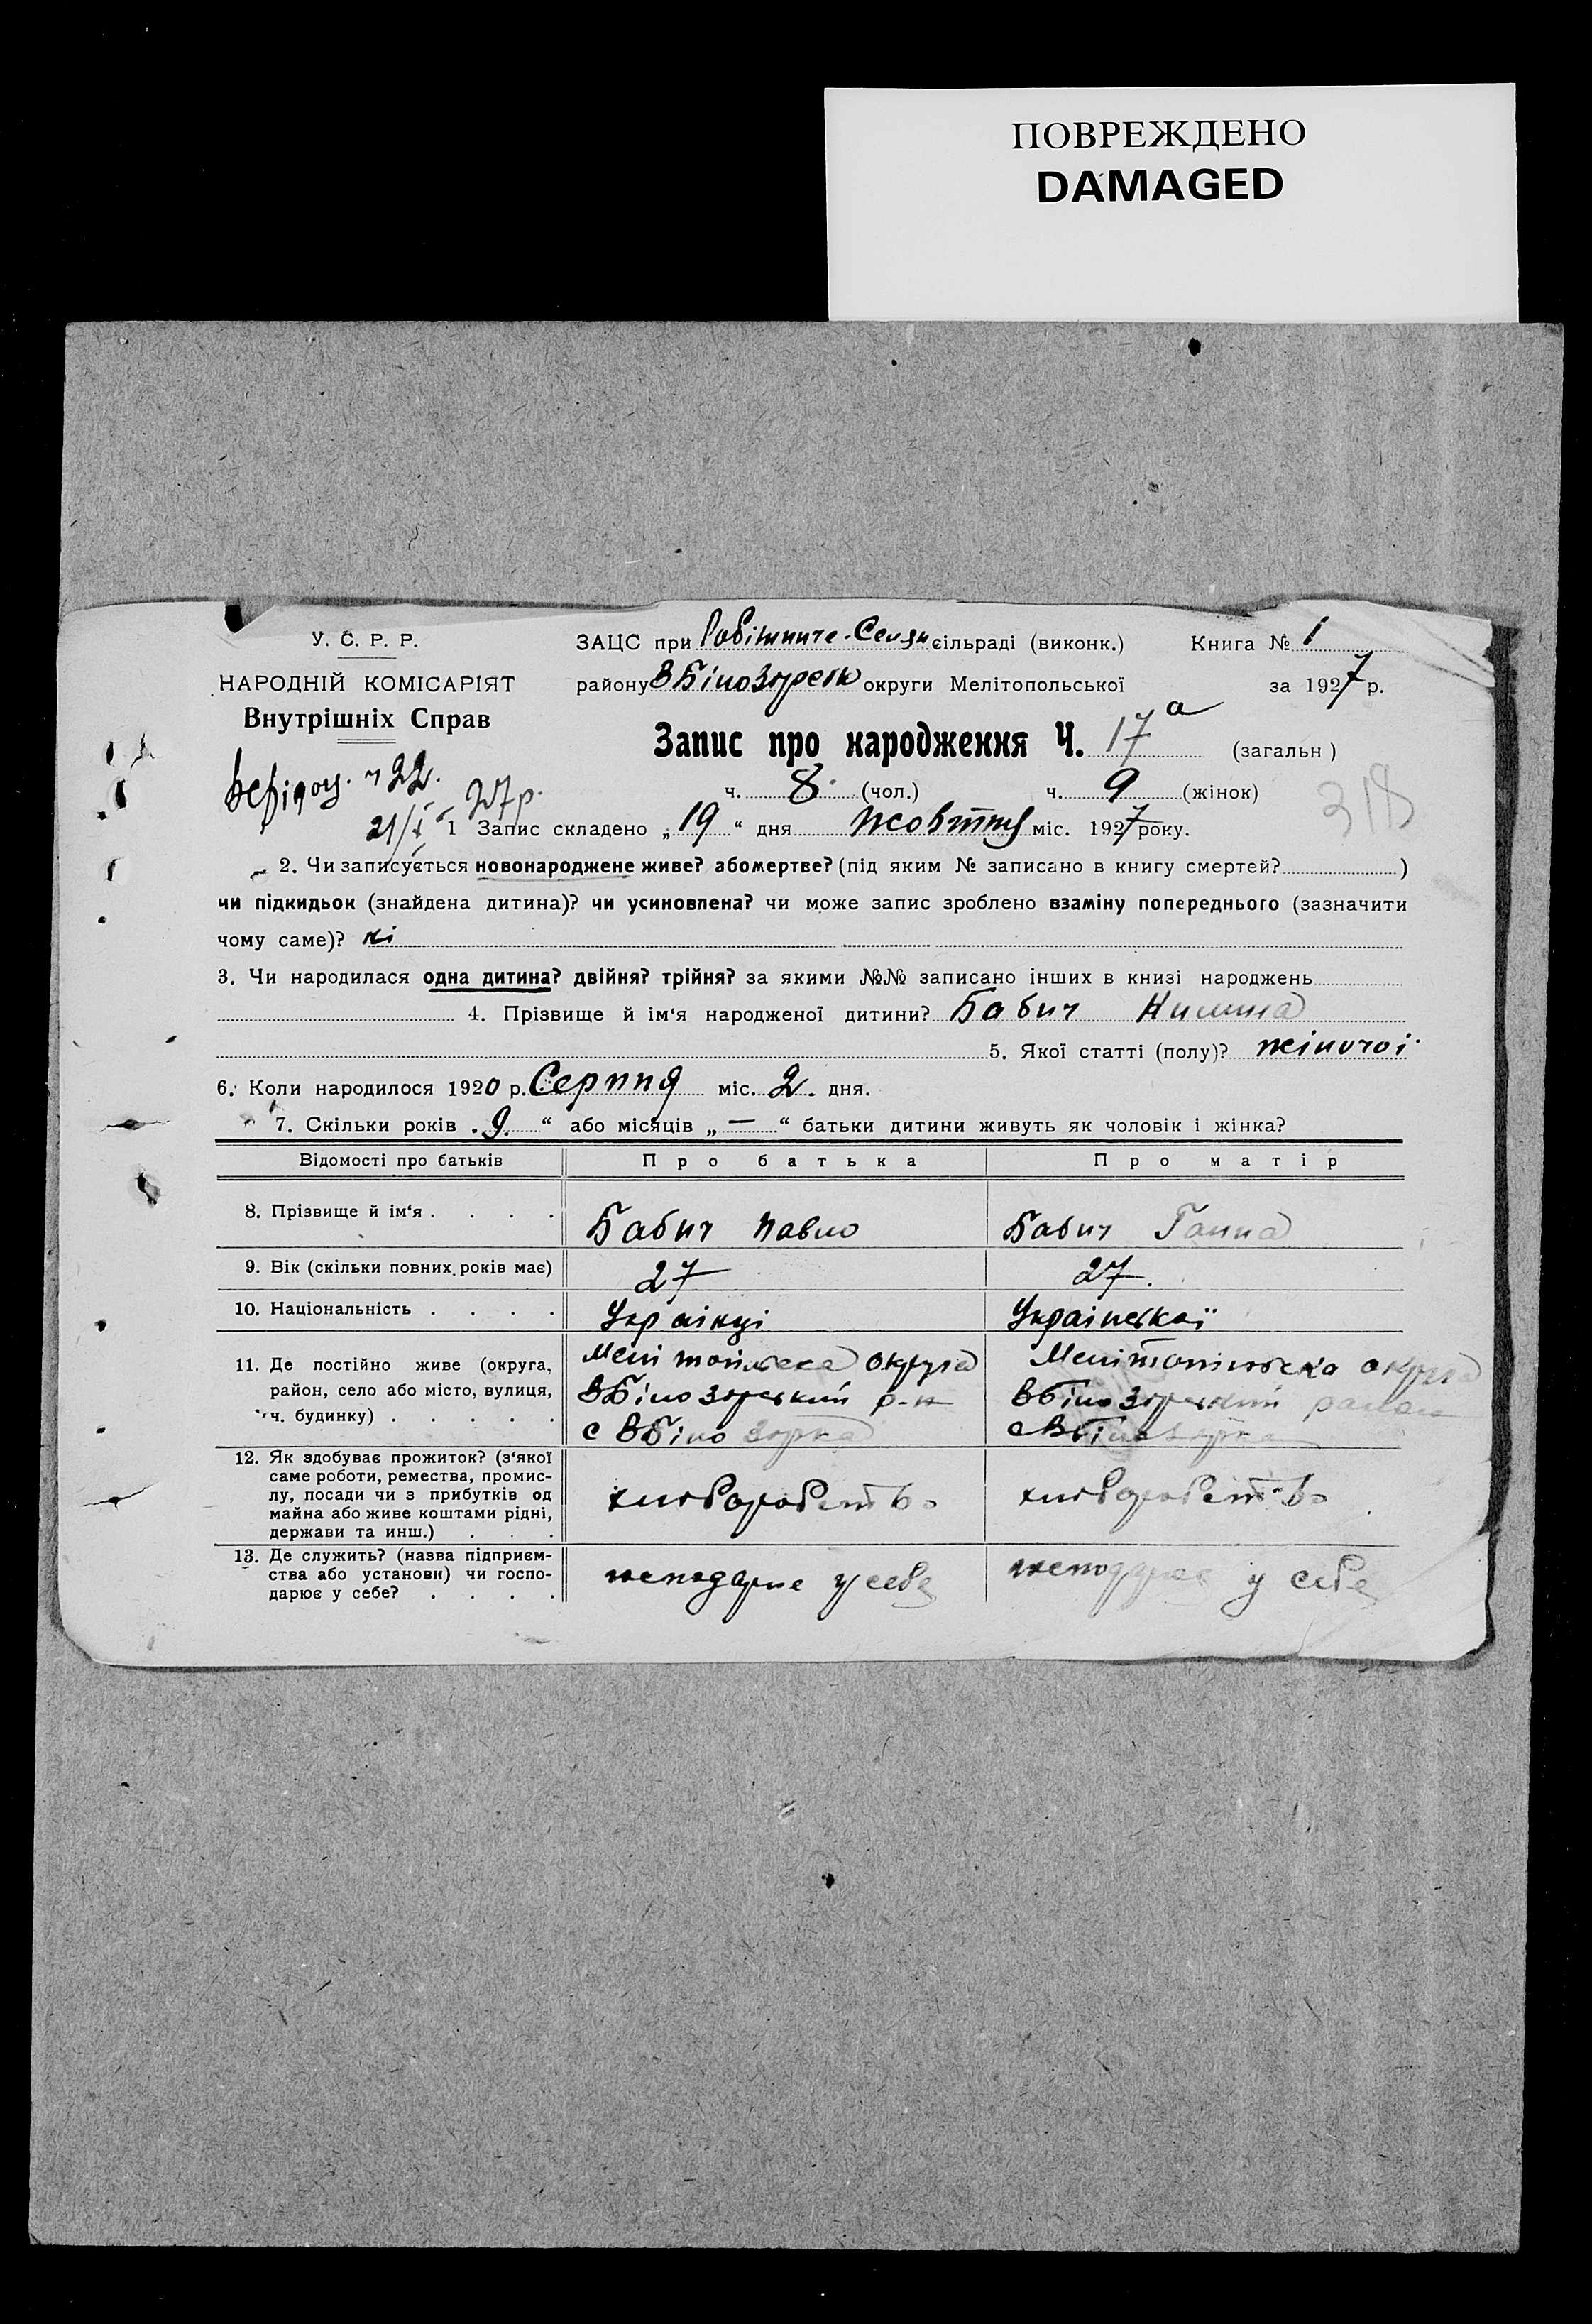 ПОВРЕЖДЕНО
DAMAGED
У. С. Р. Р.
НАРОДНІЙ КОМІСАРІЯТ
Внутрішніх Справ
ЗАЦС при Робітниче-Селян сільраді (виконк.) Книга № 1
району ВБілозирськ округи Мелітопольської за 1927 р.
Запис про народження Ч. 17а (загальн )
ч. 8 (чол.) ч. 9 (жінок)
ч 22.
21/X 27р.
318
1 Запис складено „19“ дня Жовтня міс. 1927 року.
2. Чи записується новонароджене живе? або мертве? (під яким № записано в книгу смертей? )
чи підкидьок (знайдена дитина)? чи усиновлена? чи може запис зроблено взаміну попереднього (зазначити
чому саме)? ні
3. Чи народилася одна дитина? двійня? трійня? за якими №№ записано інших в книзі народжень
4. Прізвище й ім‘я народженої дитини? Бабич
5. Якої статті (полу)? жіночої
6. Коли народилося 1920 р. Серпня міс. 2 дня.
7. Скільки років „9“ або місяців „—“ батьки дитини живуть як чоловік і жінка?
Відомості про батьків Про батька Про матір
8. Прізвище й ім‘я . . . . Бабич Павло Бабич Ганна
9. Вік (скільки повних років має) 27 27.
10. Національність . . . . Українці Української
11. Де постійно живе (округа, Мелітопільска округа Мелітопільска округа
район, село або місто, вулиця, ВБілозирський р-н ВБілозирський район
ч. будинку) . . . . . с ВБілозирка с ВБілозирка
12. Як здобуває прожиток? (з‘якої
саме роботи, ремества, промис-
лу, посади чи з прибутків од хліборобство хліборобство
майна або живе коштами рідні,
держави та инш.) . . .
13. Де служить? (назва підприєм-
ства або установи) чи госпо- у себе у себе
дарює у себе? . . . .